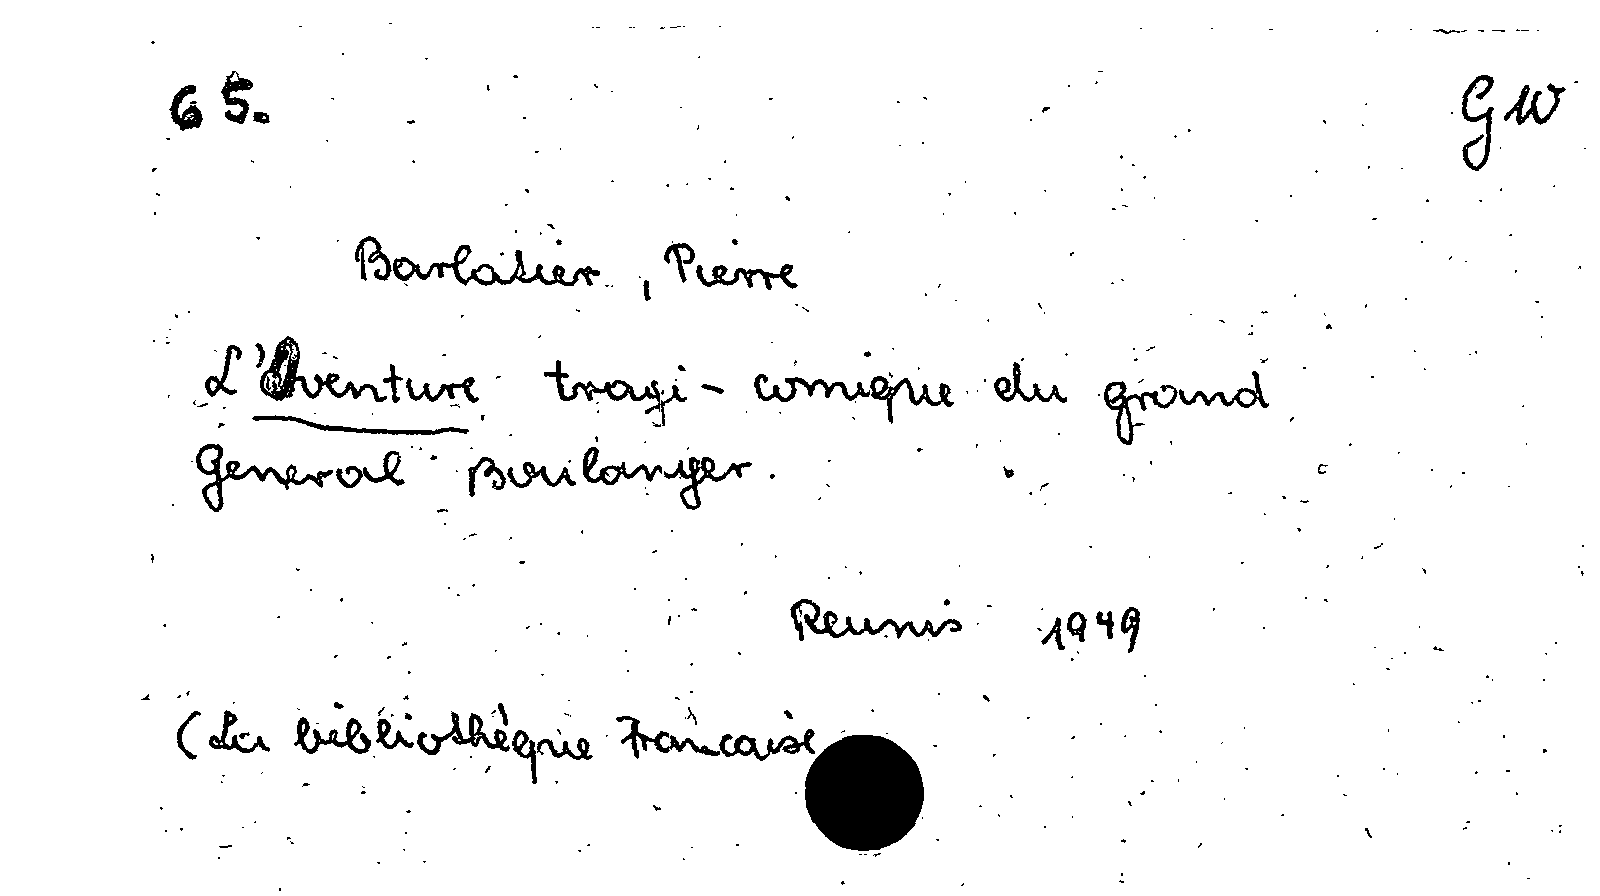 65. GW
Barlatier, Pierre
L'Aventure tragi-comique du grand
General Boulanger.
Reunis 1949
(La bibliothèque Francaise